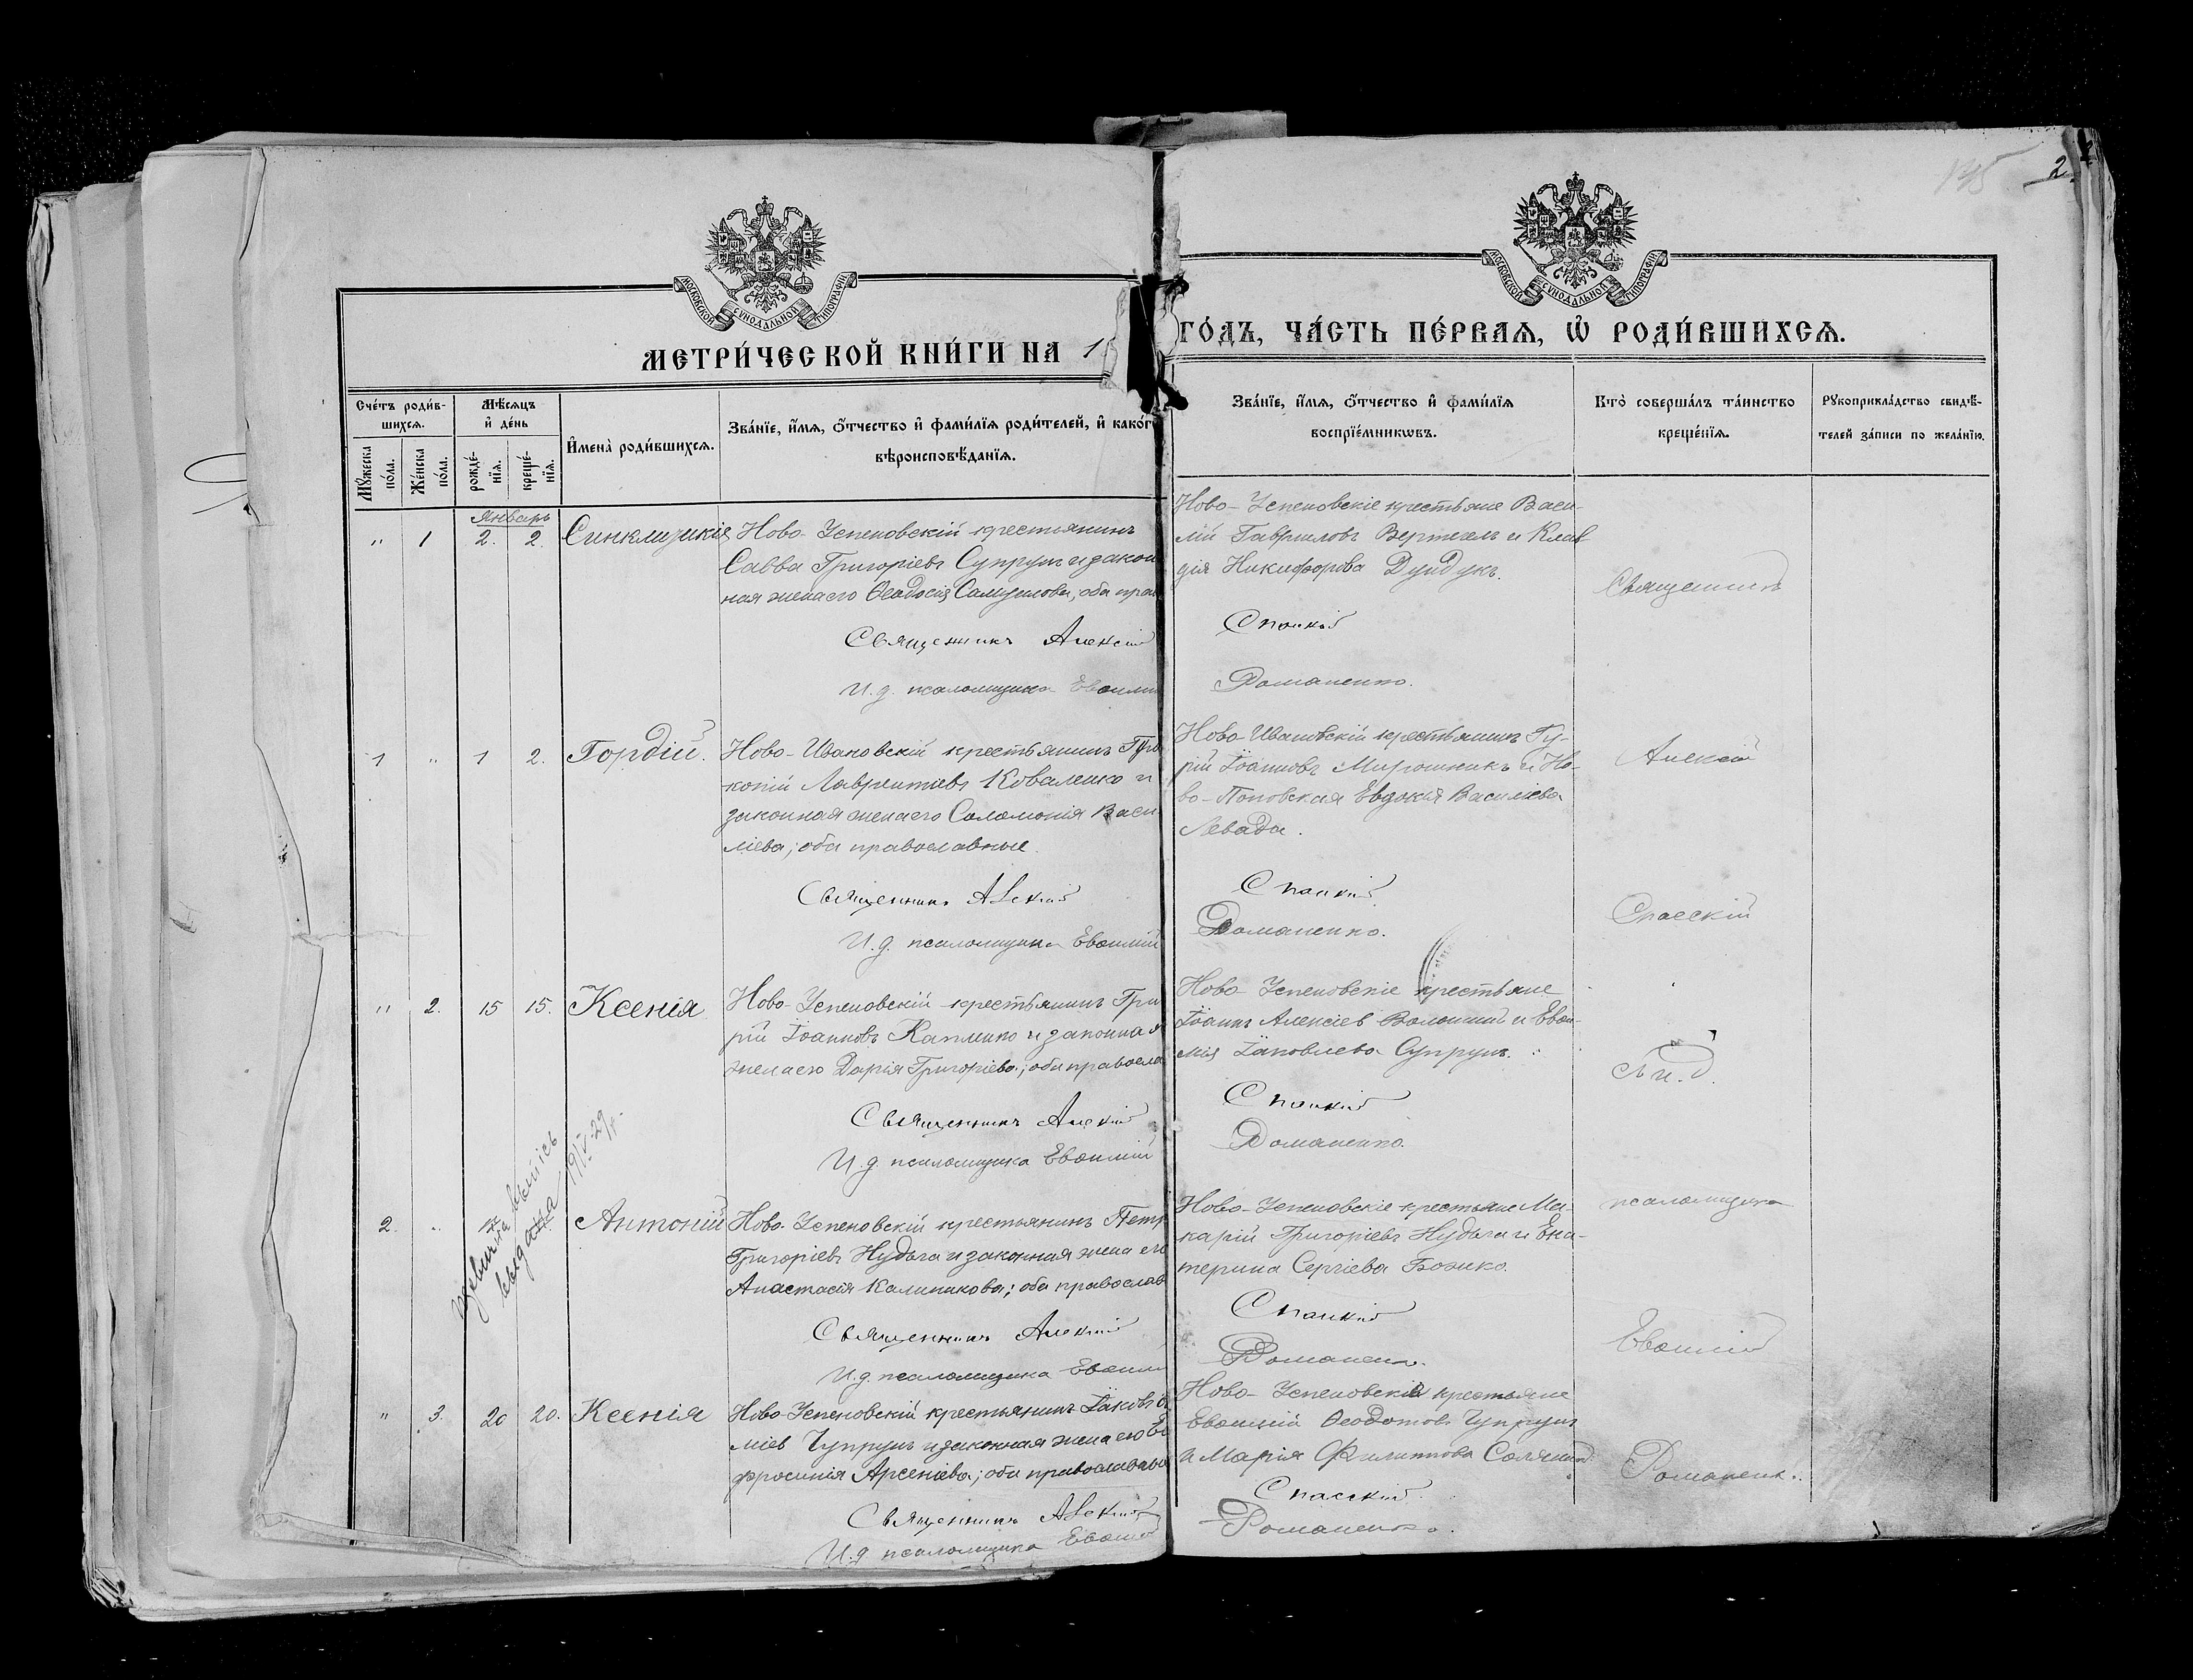 135
2
МОСКОВСКОЙ СѴНОДАЛЬНОЙ ТИПОГРАФІИ
МОСКОВСКОЙ СѴНОДАЛЬНОЙ ТИПОГРАФІИ
МЕТРИ́ЧЕСКОЙ КНИ́ГИ НА 1
ГО́ДЪ, ЧА́СТЬ ПЕ́РВАѦ, Ѽ РОДИ́ВШИХСѦ.
Сче́тъ роди́в-
шихсѧ.
Мѣ́сѧцъ
и҆ де́нь
Мꙋ́жеска
по́ла.
Же́нска
по́ла.
рожде́-
нїѧ.
креще́-
нїѧ.
И҆мена̀ роди́вшихсѧ.
Зва́нїе, и҆́мѧ, ѻ҆́тчество и҆ фами́лїѧ роди́телей, и҆ како́гѡ
вѣроисповѣ́данїѧ.
Зва́нїе, и҆́мѧ, ѻ҆́тчество и҆ фами́лїѧ
воспрїе́мникѡвъ.
Кто̀ соверша́лъ та́инство
креще́нїѧ.
Рꙋкоприкла́дство свидѣ́-
телей за́писи по жела́нїю.
Январь
" 1 2. 2. Синклитикія
Ново-Успеновскій крестьянинъ
Савва Григоріевъ Супрунъ и закон
ная жена его Ѳеодосія Самуилова; оба прав
Священникъ Алексій
И. д. псаломщика Евѳимій
Ново-Успеновскіе крестьяне Васи-
лій Гавриловъ Вертель и Клав
дія Никифорова Дундукъ.
Спасскій
Романенко.
1 " 1 2. Гордій.
Ново-Ивановскій крестьянинъ Про
копій Лаврентіевъ Коваленко и
законная жена его Соломонія Васи
ліева; оба православные
Священникъ Алексій
И. д. псаломщика Евѳимій
Ново-Ивановскій крестьянинъ Гу-
рій Іоанновъ Мирошникъ и Но-
во-Поповская Евдокія Василіева
Левада.
Спасскій
Романенко.
" 2. 15 15. Ксенія
Ново-Успеновскій крестьянинъ
рій Іоанновъ и законная
жена его Дарія Григоріева; оба правосла
Священникъ Алексій
И. д. псаломщика Евѳимій
Ново-Успеновскіе крестьяне
Іоаннъ Алексіев и Евѳи-
мія Іаковлева Супрунъ.
Спасскій
Романенко.
выпись
выдана
2. " Антоній
Ново-Успеновскій крестьянинъ Петръ
Григоріевъ Нудьга и законная жена его
Анастасія Калиникова; оба православ
Священникъ Алексій
И. д. псаломщика Евѳимій
Ново-Успеновскіе крестьяне Ма-
карій Григоріевъ Нудьга и Ека-
терина Сергіева Божко.
Спасскій
Романенко.
" 3. 20 20. Ксенія
Ново-Успеновскій крестьянинъ Іаковъ
міев Чупрунъ и законная жена его Ев
фросинія Арсеніева; оба православные
Священникъ Алексій
И. д. псаломщика Евѳимій
Ново-Успеновскіе крестьяне
Евѳимій Ѳеодотовъ Чупрунъ
и Марія Филиппова
Спасскій
Романенко.
Священникъ
Алексій
Спасскій
съ и. д.
псаломщика
Евѳимій
Романенко.